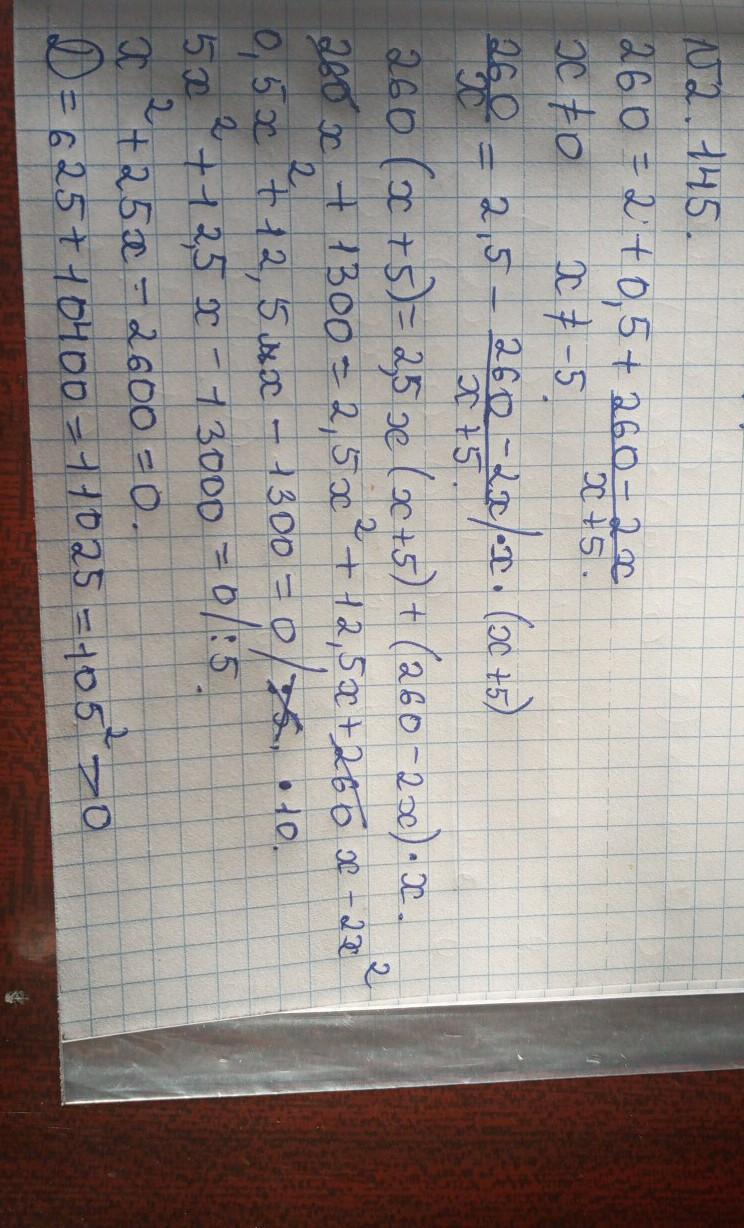 №2.145.
260 = 2 + 0,5 + 260 - 2x / x + 5.
x ≠ 0 x ≠ -5.
260/x = 2,5 - 260 - 2x / x + 5. / · x · (x + 5)
260 (x + 5) = 2,5 x (x + 5) + (260 - 2x) · x.
260 x + 1300 = 2,5x² + 12,5x + 260 x - 2x²
0,5x² + 12,5 x - 1300 = 0 / · 10.
5x² + 12,5 x - 13000 = 0 / : 5.
x² + 25x - 2600 = 0.
D = 625 + 10400 = 11025 = 105² > 0